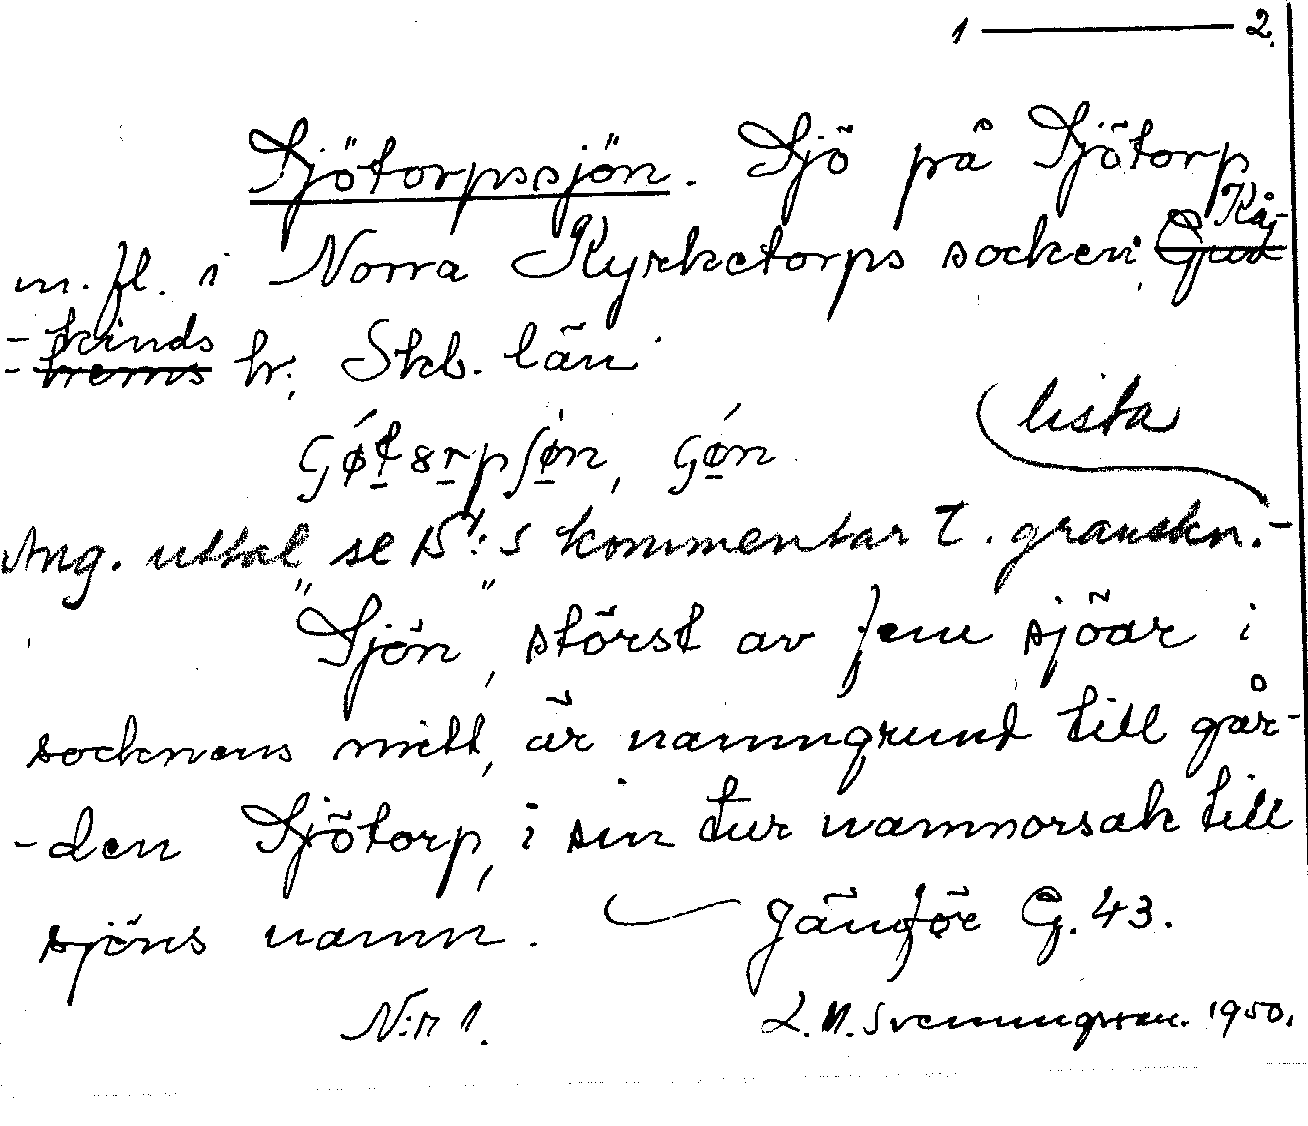 1 ——— 2.
Sjötorpssjön. Sjö på Sjötorp
m. fl. i Norra Kyrketorps socken, Kåj-
-kinds hr, Skb. län.
lista
Ang. uttal se B:s kommentar t. granskn.-
"Sjön", störst av fem sjöar i
socknens mitt, är namngrund till går-
-den Sjötorp, i sin tur namnorsak till
sjöns namn. Jämför G. 43.
N:r 1. L. M. Svenungsson. 1950.